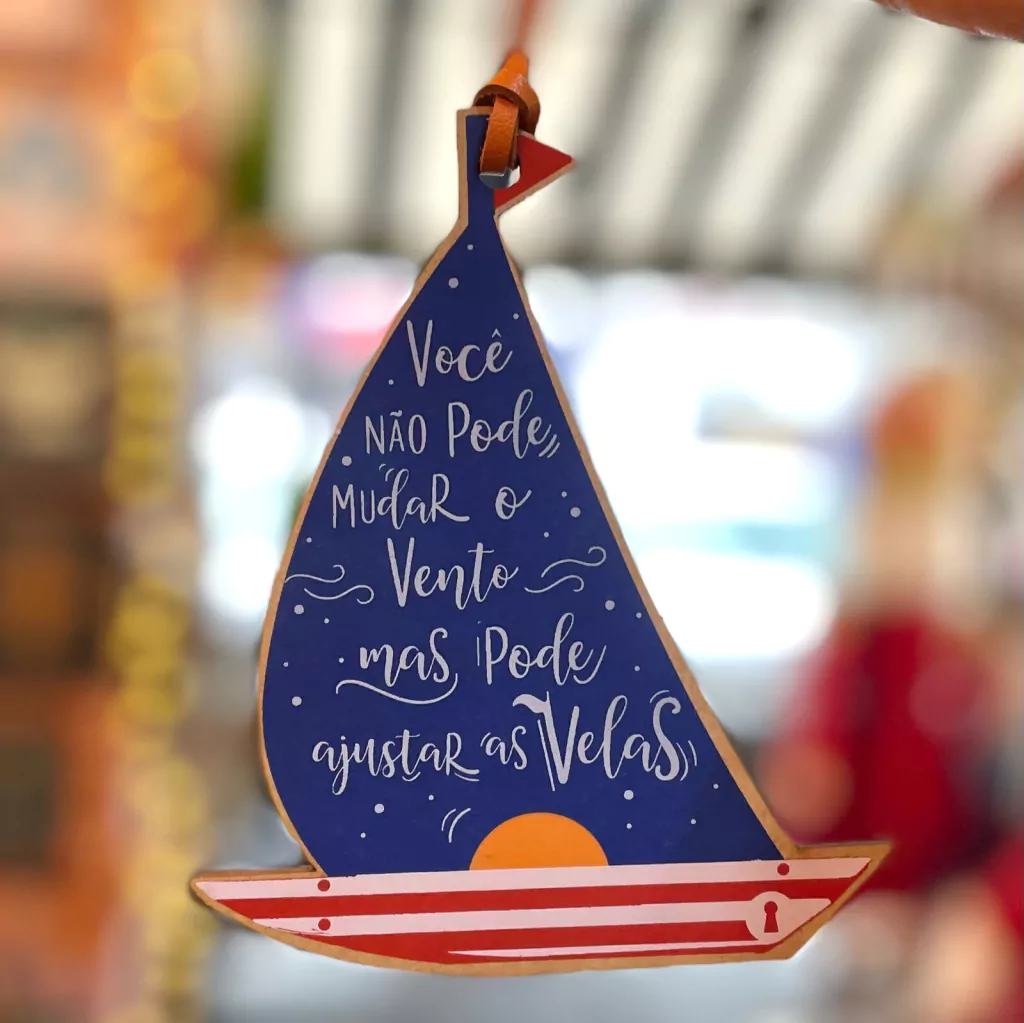 Você
NÃO Pode
MUdaR o
Vento
mas Pode
ajustaR as Velas